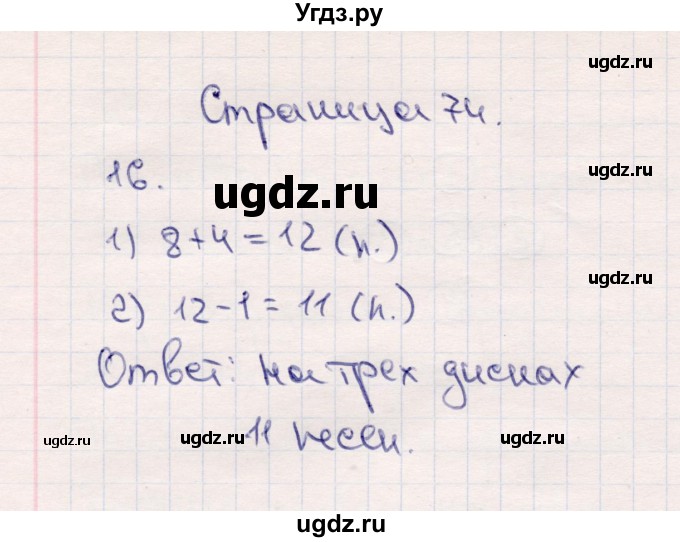 Угдз.ру
ugdz.ru
Страница 74.
16.
ugdz.ru
ugdz.ru
1) 8+4=12 (п.)
ugdz.ru
2) 12-1=11 (п.)
Ответ: на трех дисках
11 песен.
ugdz.ru ugdz.ru ugdz.ru ugdz.ru
ugdz.ru